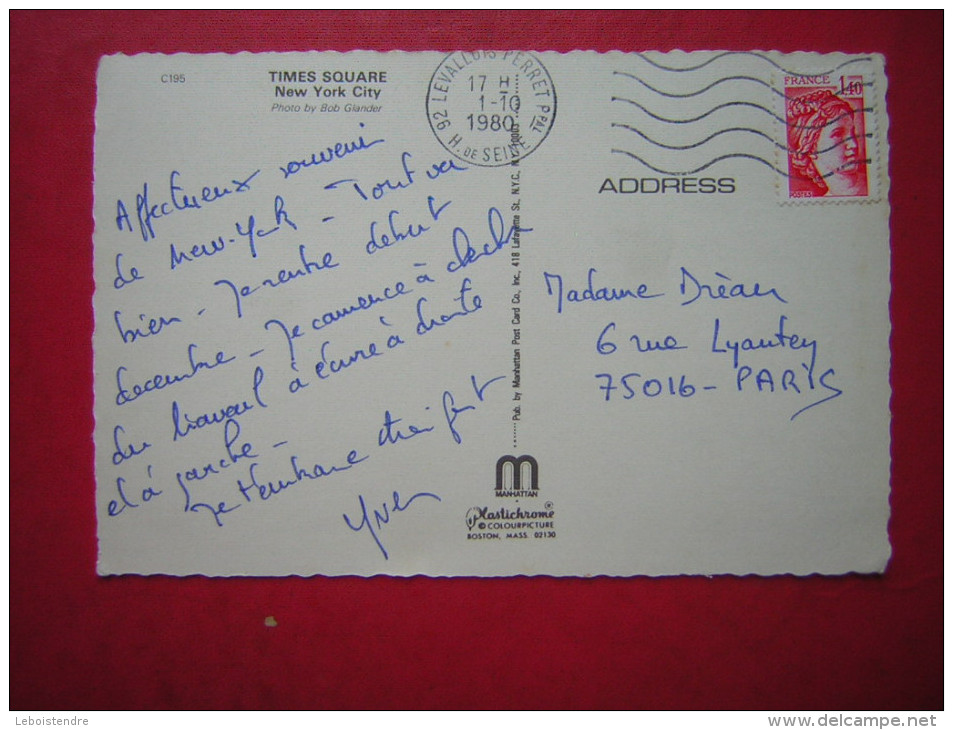 C195
TIMES SQUARE
New York City
Photo by Bob Glander
Affectueux souvenir
de New-York - Tout va
bien - Je rentre début
decembre - Je commence à cherche
du travail à écrire à droite
et à gauche -
Je t'embrasse très fort
Yves
92 LEVALLOIS PERRET PPAL
17 H
1-10
1980
H. DE SEINE
FRANCE
1,40
POSTES
ADDRESS
Madame Dréau
6 rue Lyautey
75016 - PARIS
Pub. by Manhattan Post Card Co., Inc., 418 Lafayette St., N.Y.C., N.Y. 10003
m
MANHATTAN
Plastichrome ®
© COLOURPICTURE
BOSTON, MASS. 02130
Leboistendre
www.delcampe.net